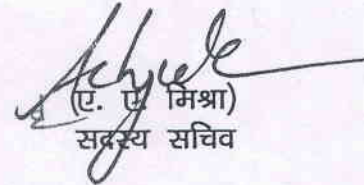 (ए. ए. मिश्रा)
सदस्य सचिव